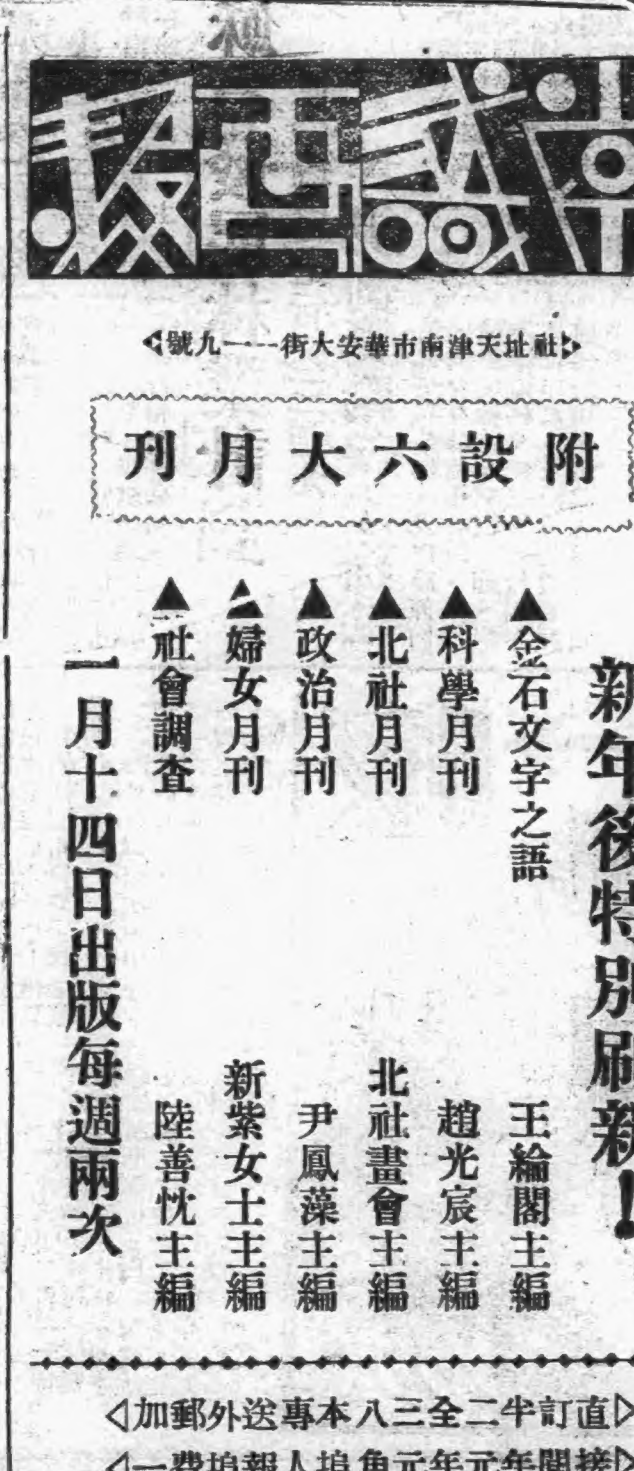 常識画報
社址天津南市華安大街一一九號
附設六大月刊
新年後特別刷新！
▲金石文字之語 王綸閣主編
▲科學月刊 趙光宸主編
▲北社月刊 北社畫會主編
▲政治月刊 尹鳳藻主編
▲婦女月刊 新紫女士主編
▲社會調查 陸善忱主編
一月十四日出版每週兩次
直訂半二全三八本專送外郵加
接閱年元年元角埠人報埠費一